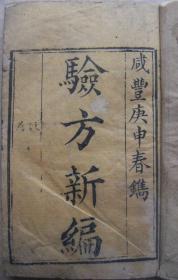 咸豐庚申春鐫
驗方新編